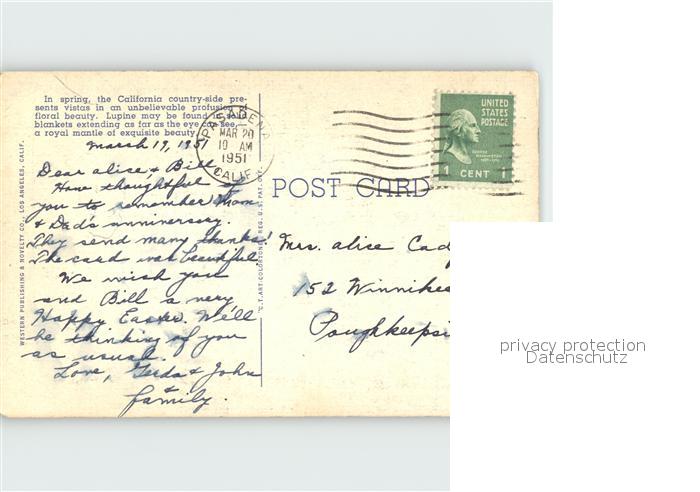 In spring, the California country-side pre-
sents vistas in an unbelievable profusion of
floral beauty. Lupine may be found in solid
blankets extending as far as the eye can see,—
a royal mantle of exquisite beauty.
PASADENA
MAR 20
10 AM
1951
CALIF.
UNITED
STATES
POSTAGE
GEORGE WASHINGTON
1 CENT 1
March 19, 1951
Dear Alice & Bill
How thoughtful of
you to remember Mom
& Dad's anniversary.
They send many thanks!
The card was beautiful.
We wish you
and Bill a very
Happy Easter. We'll
be thinking of you
as usual.
Love, Gerda & John
& family.
WESTERN PUBLISHING & NOVELTY CO., LOS ANGELES, CALIF.
"C.T. ART-COLORTONE" REG. U.S. PAT. OFF.
POST CARD
Mrs. Alice Cad
152 Winnikee
Poughkeepsi
privacy protection
Datenschutz